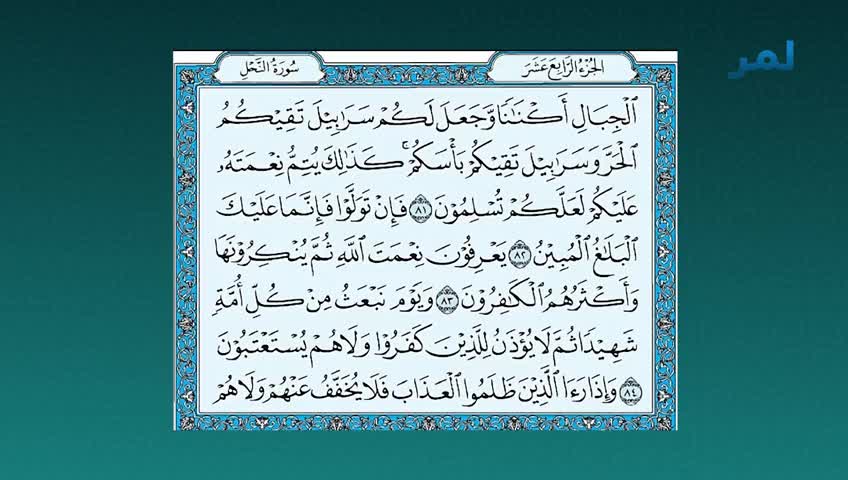 لمر
الجزء الرابع عشر
سورة النحل
ٱلْجِبَالِ أَكْنَٰنًا وَجَعَلَ لَكُمْ سَرَٰبِيلَ تَقِيكُمُ
ٱلْحَرَّ وَسَرَٰبِيلَ تَقِيكُم بَأْسَكُمْ ۚ كَذَٰلِكَ يُتِمُّ نِعْمَتَهُۥ
عَلَيْكُمْ لَعَلَّكُمْ تُسْلِمُونَ ٨١ فَإِن تَوَلَّوْا۟ فَإِنَّمَا عَلَيْكَ
ٱلْبَلَٰغُ ٱلْمُبِينُ ٨٢ يَعْرِفُونَ نِعْمَتَ ٱللَّهِ ثُمَّ يُنكِرُونَهَا
وَأَكْثَرُهُمُ ٱلْكَٰفِرُونَ ٨٣ وَيَوْمَ نَبْعَثُ مِن كُلِّ أُمَّةٍ
شَهِيدًا ثُمَّ لَا يُؤْذَنُ لِلَّذِينَ كَفَرُوا۟ وَلَا هُمْ يُسْتَعْتَبُونَ
٨٤ وَإِذَا رَءَا ٱلَّذِينَ ظَلَمُوا۟ ٱلْعَذَابَ فَلَا يُخَفَّفُ عَنْهُمْ وَلَا هُمْ